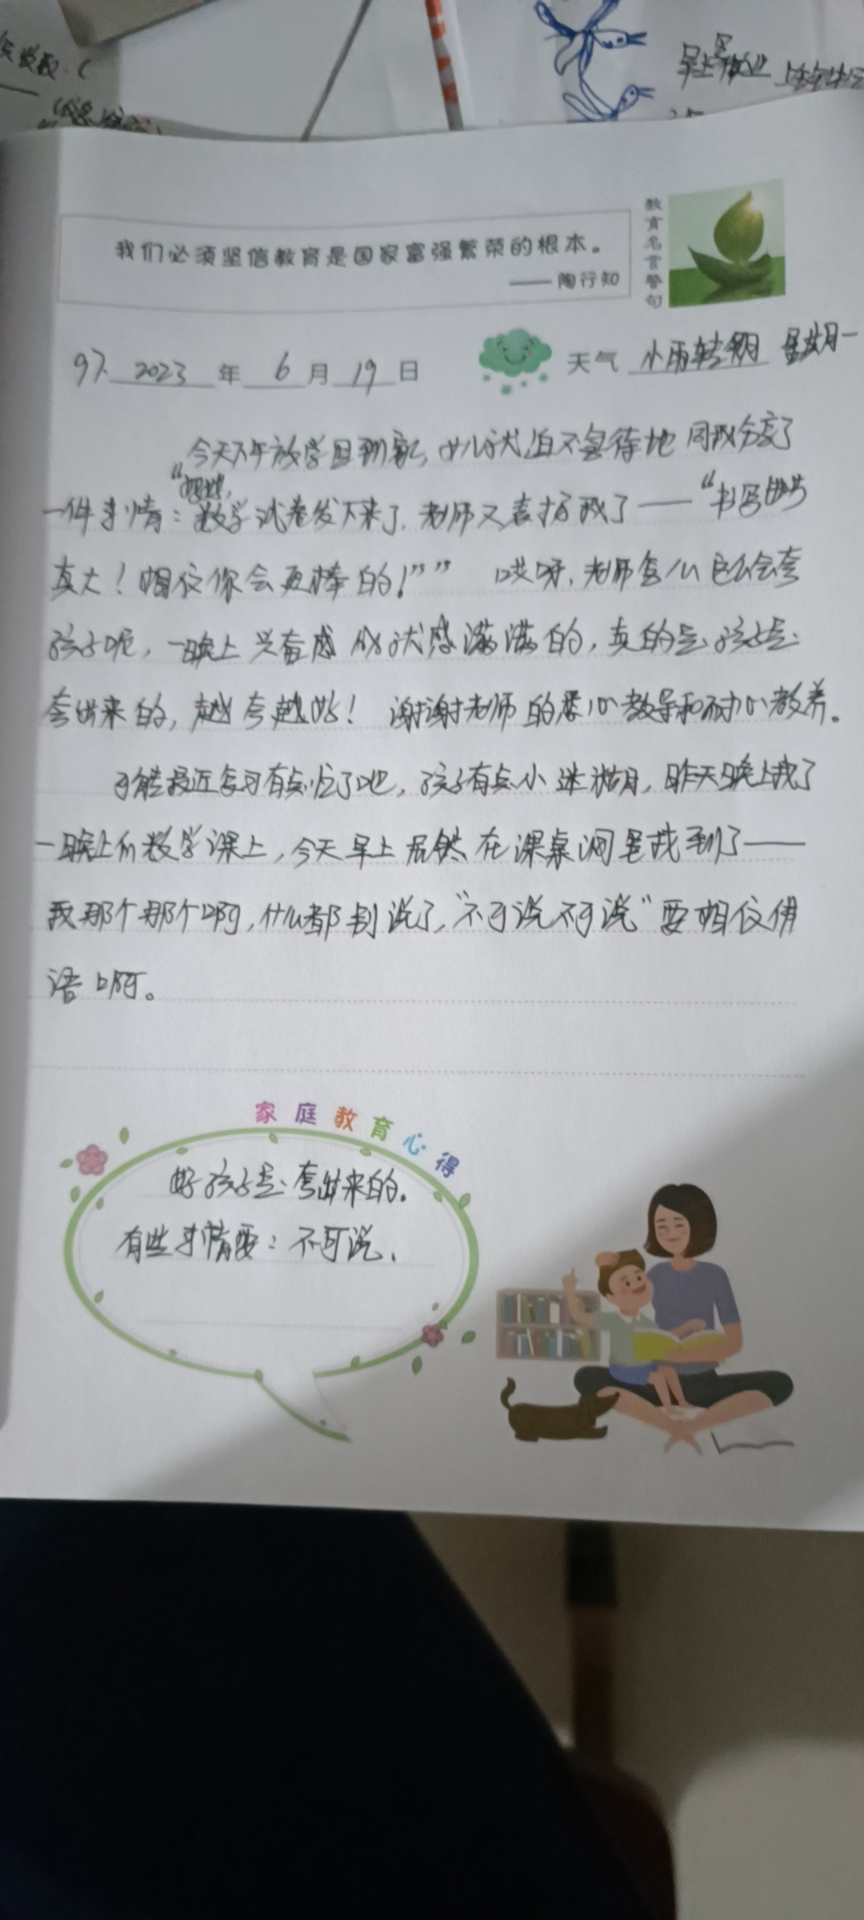 我们必须坚信教育是国家富强繁荣的根本。
——陶行知
教育名言警句
97. 2023 年 6 月 19 日 天气 小雨转阴 星期一
今天下午放学回到家，女儿迫不急待地同我分享了
“妈妈，
一件事情：数学试卷发下来了，老师又表扬我了——“书写进步
真大！相信你会更棒的！”” 哎呀，老师怎么这么会夸
孩子呢，一晚上兴奋感 成就感满满的，真的是孩子是
夸出来的，越夸越好！ 谢谢老师的悉心教导和耐心教养。
可能最近复习有点忙了吧，孩子有点小迷糊，昨天晚上找了
一晚上的数学课上，今天早上居然在课桌洞里找到了——
我那个那个啊，什么都别说了，“不可说不可说”要相信佛
语啊。
家庭教育心得
好孩子是夸出来的。
有些事情要：不可说、